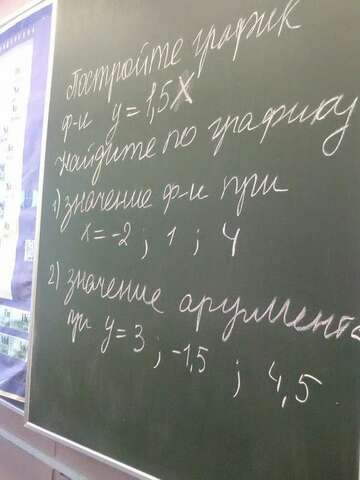 Постройте график
ф-и y=1,5x
Найдите по графику
1) значение ф-и при
x=-2 ; 1 ; 4
2) значение аргумента
при y=3 ; -1,5 ; 4,5